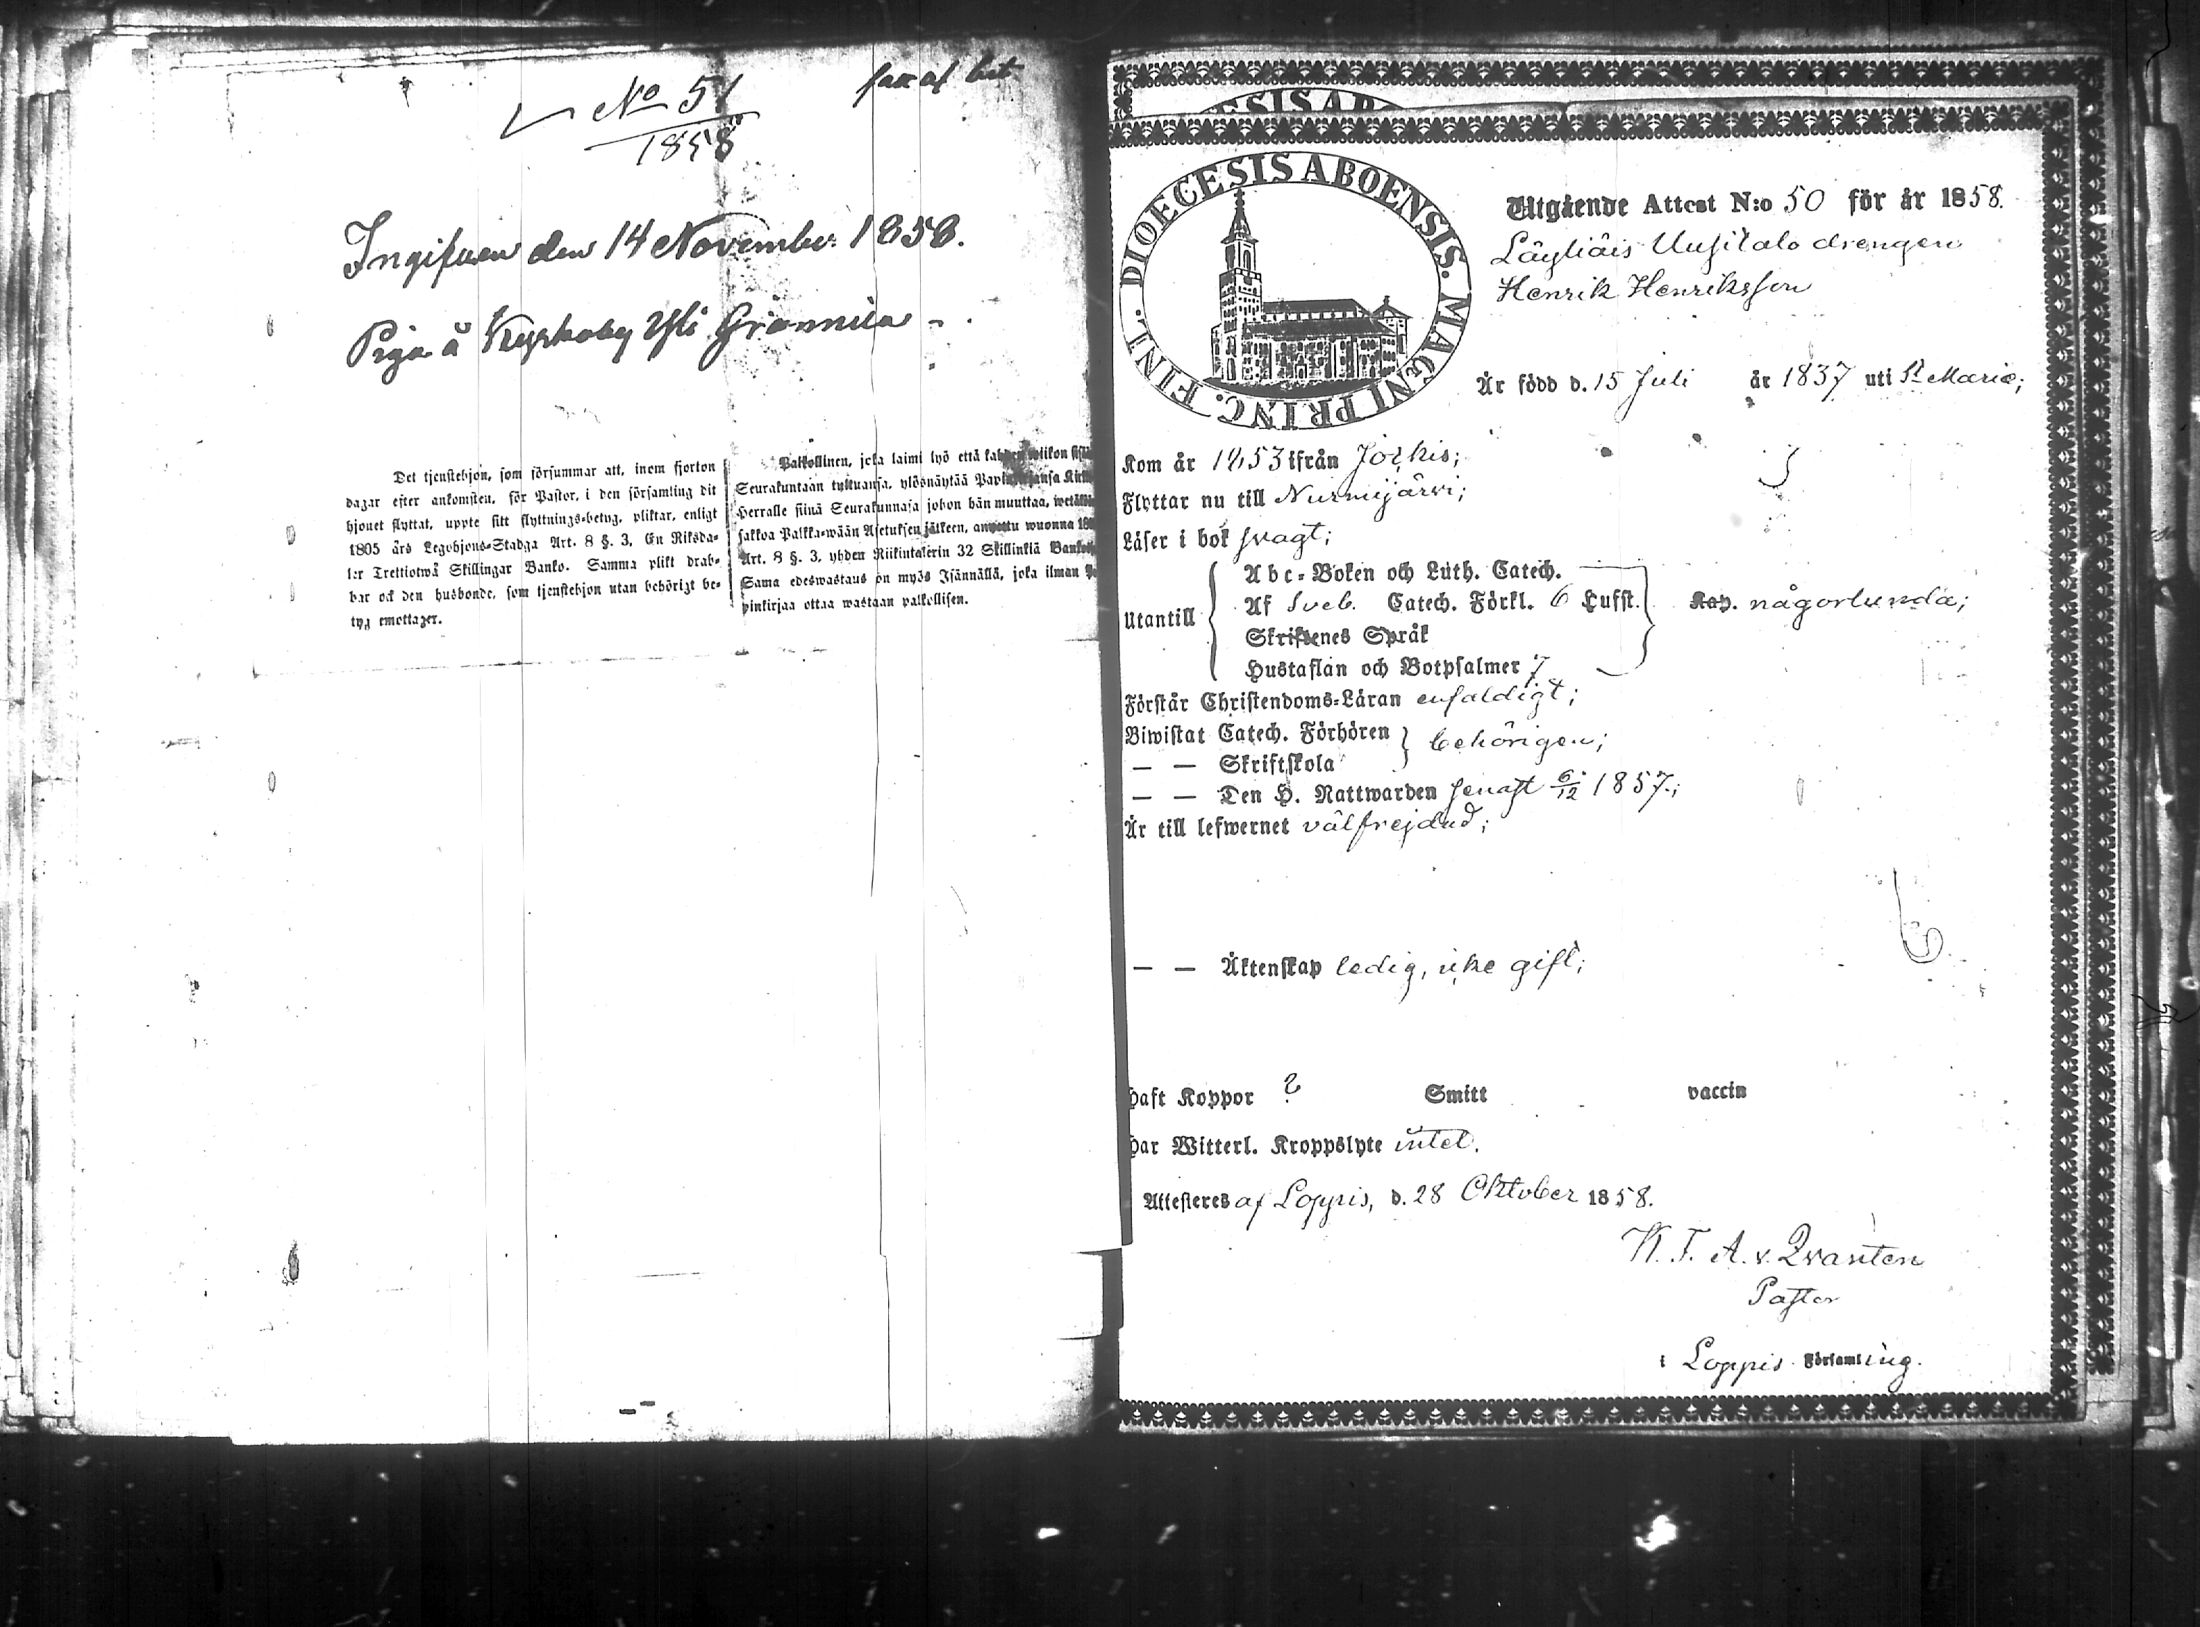 No 51
1858
Ingifven den 14 November 1858.
Piga å Kyrkoby Yli
Det tjenstehjon, som försummar att, inom fjorton
dagar efter ankomsten, för Pastor, i den församling dit
hjonet flyttat, uppte sitt flyttnings-betyg, pliktar, enligt
1805 års Legohjons-Stadga Art. 8 §. 3, En Riksda-
ler Trettiotwå Skillingar Banko. Samma plikt drab-
bar ock den husbonde, som tjenstehjon utan behörigt be-
tyg emottager.
Palkollinen, joka laimi lyö että
Seurakuntaan tultuansa, ylösnäytää
Herralle siinä Seurakunnasa johon hän muuttaa,
sakkoa Palkka-wään Asetuksen jälkeen, wuonna
Art. 8 §. 3, yhden Riikintalerin 32 Skillinkiä
Sama edeswastaus on myös Isännällä, joka ilman
pinkirjaa ottaa wastaan palkollisen.
DIOECESIS ABOENSIS. MAGNI PRINC. FINL.
Utgående Attest N:o 50 för år 1858.
Läyliäis Uusitalo drengen
Henrik Henriksson
Är född d. 15 Juli år 1837 uti St Marie;
Kom år 1853 ifrån Jockis;
Flyttar nu till Nurmijärvi;
Läser i bok svagt;
Utantill
Abc-Boken och Luth. Catech.
Af Sveb. Catech. Förkl. 6 Hufst. Kap. någorlunda;
Skriftenes Språk
Hustaflan och Botpsalmer 7
Förstår Christendoms-Läran enfaldigt;
Biwistat Catech. Förhören behörigen;
— — Skriftskola
— — Den H. Nattwarden senast 6/12 1857;
Är till lefwernet välfrejdad;
— — Äktenskap ledig, icke gift;
Haft Koppor ? Smitt vaccin
Har Witterl. Kroppslyte intet.
Attesteras af Loppis, d. 28 Oktober 1858.
K. F. A. v. Qvanten
Pastor
i Loppis Församling.